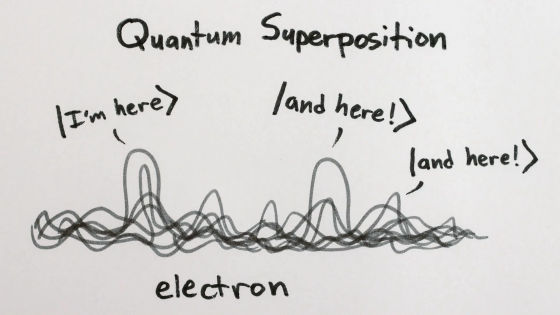 Quantum Superposition
|I'm here⟩
|and here!⟩
|and here!⟩
electron